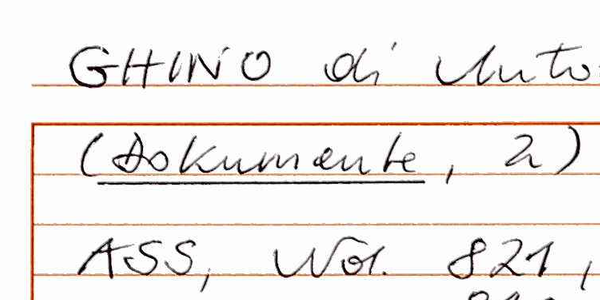 GHINO di Anto
(Dokumente, 2)
ASS, Not. 821,